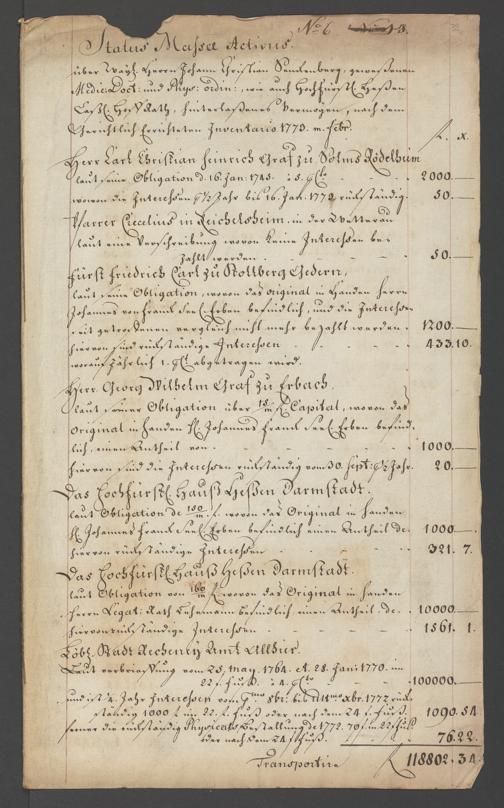 No 6
Status Massae Activus.
über Weyl. Herrn Johann Christian Senckenberg, gewesenen
Medic: Doct: und Phys: ordin:, wie auch Hochfürstl. Heßen
Caßl. Hoff Rath, hinterlaßenes Vermögen, nach dem
Gerichtlich Errichteten Inventario 1773. m. febr.
f. x.
Herr Carl Christian Heinrich Graf zu Solms Rödelheim
laut seine Obligation d. 16. Jan: 1745. à 5. 2000.—
wovon die Interessen ½ Jahr bis 16. Jan: 1772 rückständig. 50.—
Pfarrer Cecelius in Reichelsheim, in der Wetterau
laut eine Verschreibung wovon keine Interessen be-
zahlt werden 50.—
Fürst Friedrich Carl zu Stollberg Gedern,
laut seine Obligation, wovon das original in Handen Herrn
Johannes von Franck Seel. Erben befindlich, und die Interessen
seit getroffenen vergleich nicht mehr bezahlt werden 1200.—
hiervon sind rückständige Interessen 433.10.
woran jährlich 1. abgetragen wird.
Herr Georg Wilhelm Graf zu Erbach.
laut seiner Obligation über Capital, wovon das
original in Handen H. Johannes Franck Seel. Erben befind-
lich, einen Antheil von 1000.—
hiervon sind die Interessen rückständig vom 30. Sept: Jahr. 20.—
Das Hochfürstl. Hauß Heßen Darmstadt.
laut Obligation de wovon das Original in Handen
H. Johannes Franck Seel. Erben befindlich einen Antheil de 1000.—
hiervon rückständige Interessen 321. 7.
Das Hochfürstl. Hauß Heßen Darmstadt.
laut Obligation von wovon das Original in Handen
Herrn Legat: Rath Lehemann befindlich einen Antheil de. 10000.—
hiervon rückständige Interessen 1561. 1.
Löbl. Stadt Recheney Amt Allhier.
Laut verbriefung vom 25. May. 1764. et. 28. Juni 1770. im
22 f. fuß. à 4. 100000.—
und ist ¼ Jahr Interessen vom bis d. xbr. 1772 rück-
ständig 1000 f. im 22. f. fuß oder nach dem 24 f. fuß. 1090.54
ferner die rückständig Physicats Bestallung de 1772. 70 f. im 22 f. fuß
oder nach dem 24 f. fuß. 76.22.
Transportire f 118802.34